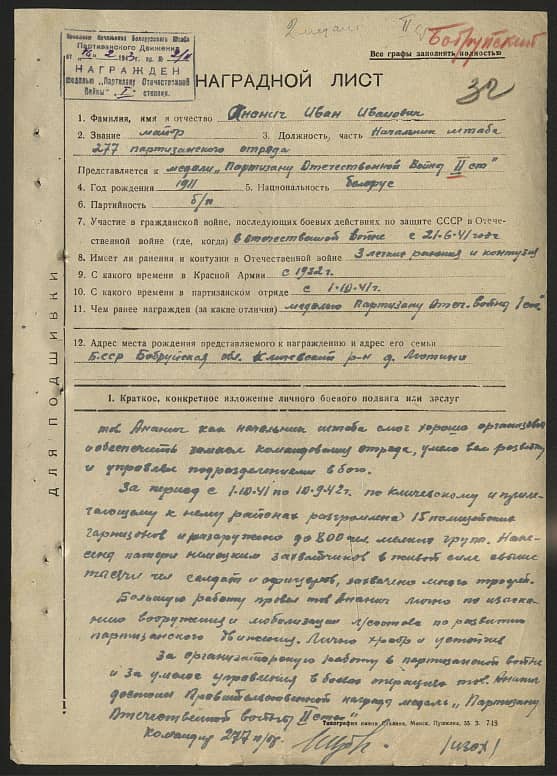 2 медаль II
Бобруйский
Все графы заполнять полностью
Приказом Начальника Белорусского Штаба
Партизанского Движения
НАГРАЖДЕН
медалью „Партизану Отечественной
Войны" I степени.
32
НАГРАДНОЙ ЛИСТ
1. Фамилия, имя и отчество Ананич Иван Иванович
2. Звание майор 3. Должность, часть Начальник штаба
277 партизанского отряда
Представляется к медали „Партизану Отечественной Войны II ст"
4. Год рождения 1911 5. Национальность белорус
6. Партийность б/п
7. Участие в гражданской войне, последующих боевых действиях по защите СССР и Отече-
ственной войне (где, когда) в отечественной войне с 21-6-41 года
8. Имеет ли ранения и контузии в Отечественной войне 3 легкие ранения и контузия
9. С какого времени в Красной Армии с 1932г.
10. С какого времени в партизанском отряде с 1-10-41г.
11. Чем ранее награжден (за какие отличия) медалью Партизану Отеч. войны I ст"
12. Адрес места рождения представляемого к награждению и адрес его семьи
Б.ССР Бобруйская обл. Кличевский р-н д.
ДЛЯ ПОДШИВКИ
I. Краткое, конкретное изложение личного боевого подвига или заслуг
тов Ананич как начальник штаба смог хорошо организовать
и обеспечить замысел командования отряда, умело вел разведку
и управлял подразделениями в бою.
За период с 1-10-41 по 10.9.42г. по Кличевскому и приле-
гающему к нему районах разгромлено 15 полицейских
гарнизонов и разоружено до 800 чел. мелких групп. Нане-
сены потери немецким захватчиков в живой силе свыше
тысячи чел солдат и офицеров, захвачено много трофей.
Большую работу провел тов Ананич лично по изыска-
нию вооружения и мобилизации по развитию
партизанского движения. Лично храбр и устойчив
За организаторскую работу в партизанской войне
и за умелое управления в боевых операциях тов. Ананич
достоин Правительственной награды медаль „Партизану
Отечественной войны II степ"
Типография имени Сталина, Минск, Пушкина, 55. З. 718
Командир 277 п/от
(изох)